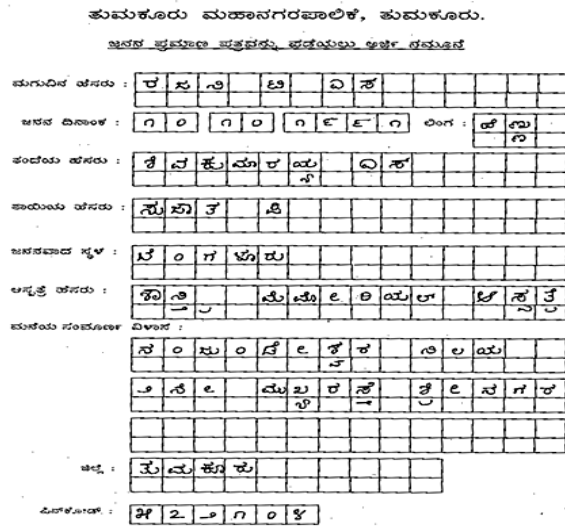 ತುಮಕೂರು ಮಹಾನಗರಪಾಲಿಕೆ, ತುಮಕೂರು.
ಜನನ ಪ್ರಮಾಣ ಪತ್ರವನ್ನು ಪಡೆಯಲು ಅರ್ಜಿ ನಮೂನೆ
ಮಗುವಿನ ಹೆಸರು : ರಜನಿ ಟಿ ಎಸ್
ಜನನ ದಿನಾಂಕ : ೧೦ ೧೦ ೧೯೯೧ ಲಿಂಗ : ಹೆಣ್ಣು
ತಂದೆಯ ಹೆಸರು : ಶಿವಕುಮಾರಯ್ಯ ಎಸ್
ತಾಯಿಯ ಹೆಸರು : ಸುಜಾತ ಪಿ
ಜನನವಾದ ಸ್ಥಳ : ಬೆಂಗಳೂರು
ಆಸ್ಪತ್ರೆ ಹೆಸರು : ಶಾಸ್ತ್ರಿ ಮೆಮೋರಿಯಲ್ ಆಸ್ಪತ್ರೆ
ಮನೆಯ ಸಂಪೂರ್ಣ ವಿಳಾಸ :
ನಂಜುಂಡೇಶ್ವರ ನಿಲಯ
೨ನೇ ಮುಖ್ಯರಸ್ತೆ ಶ್ರೀನಗರ
ಜಿಲ್ಲೆ : ತುಮಕೂರು
ಪಿನ್‌ಕೋಡ್ : ೫೭೨೧೦೪